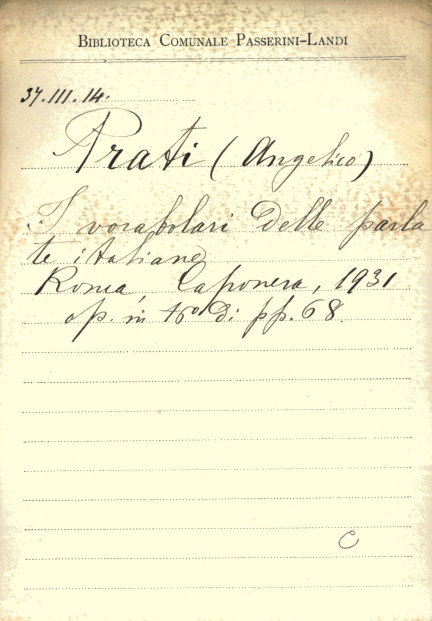 BIBLIOTECA COMUNALE PASSERINI-LANDI
37.III.14.
Prati (Angelico)
I vocabolari delle parla
te italiane
Roma, Caponera, 1931
op. in 16º di pp. 68.
C